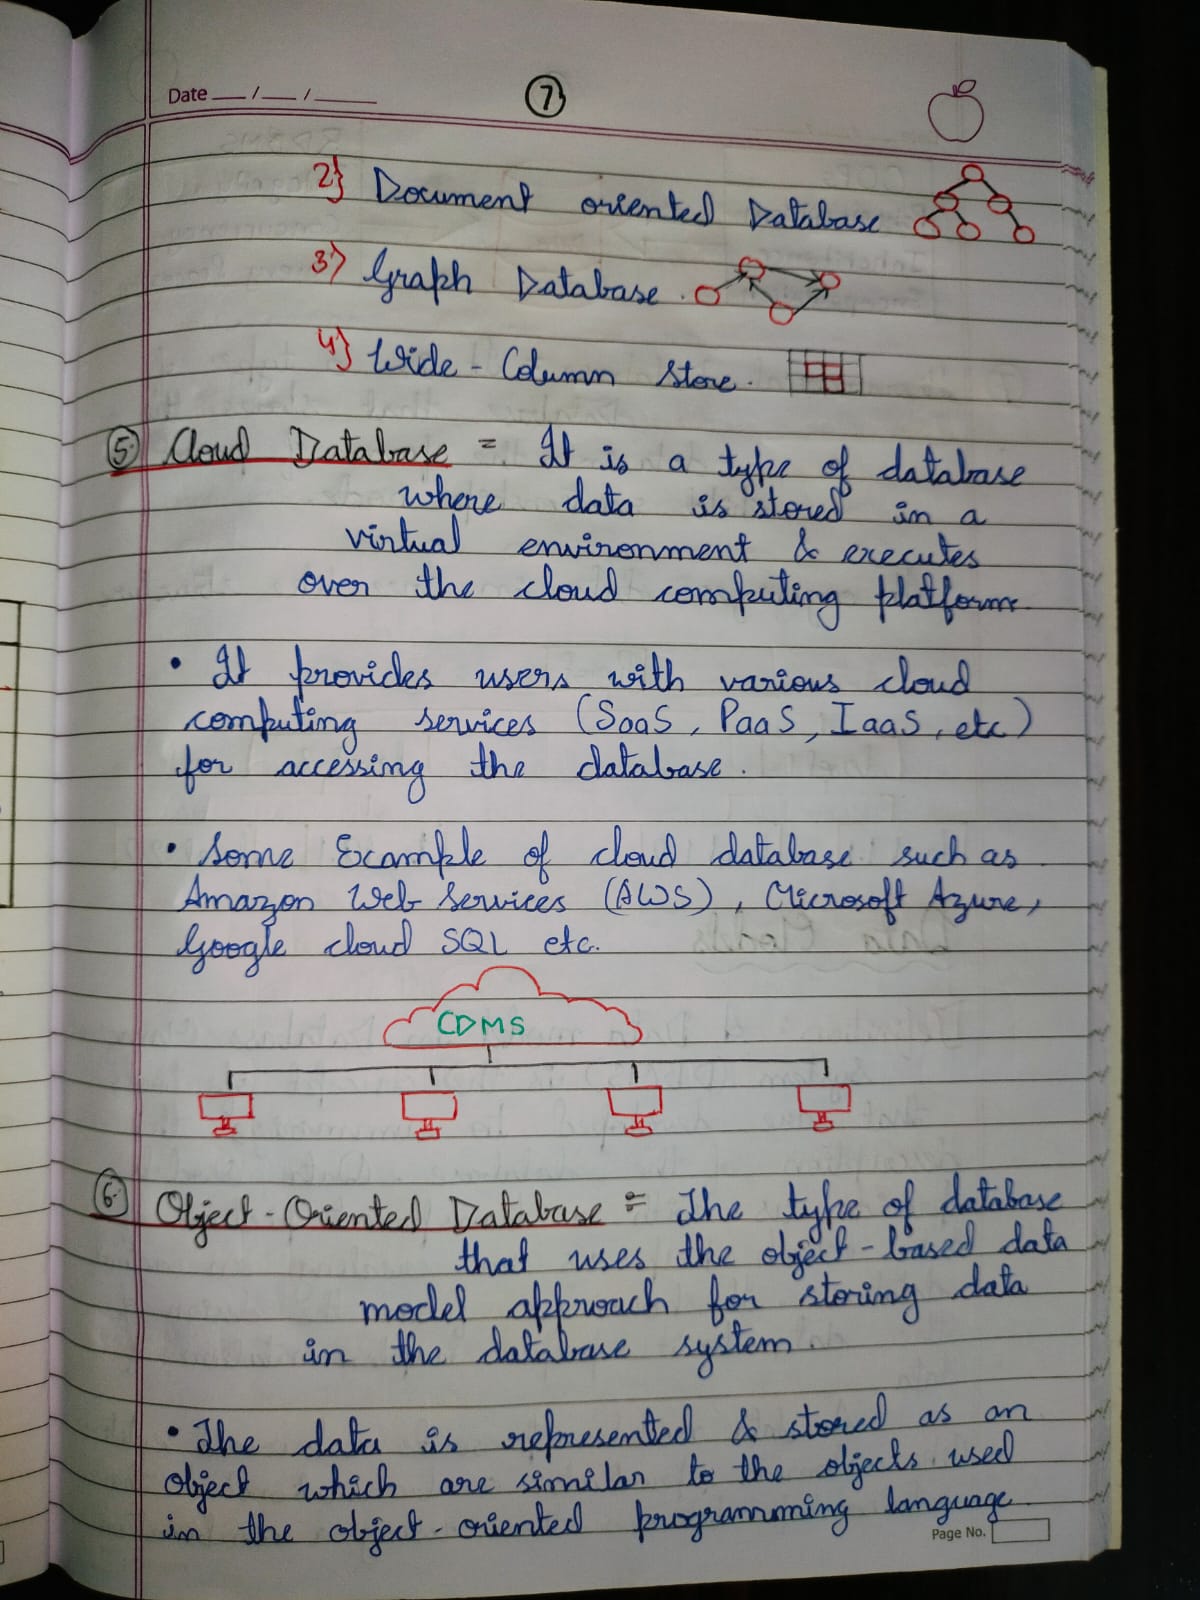 Date __/__/____
7
2} Document oriented Database
3) Graph Database.
4} Wide-Column Store.
5. Cloud Database = It is a type of database
where data is stored in a
virtual environment & executes
over the cloud computing platform
• It provides users with various cloud
computing services (SaaS, PaaS, IaaS, etc)
for accessing the database.
• Some Example of cloud database such as
Amazon Web Services (AWS), Microsoft Azure,
Google cloud SQL etc.
CDMS
6. Object-Oriented Database = The type of database
that uses the object-based data
model approach for storing data
in the database system.
• The data is represented & stored as an
object which are similar to the objects used
in the object-oriented programming language
Page No.